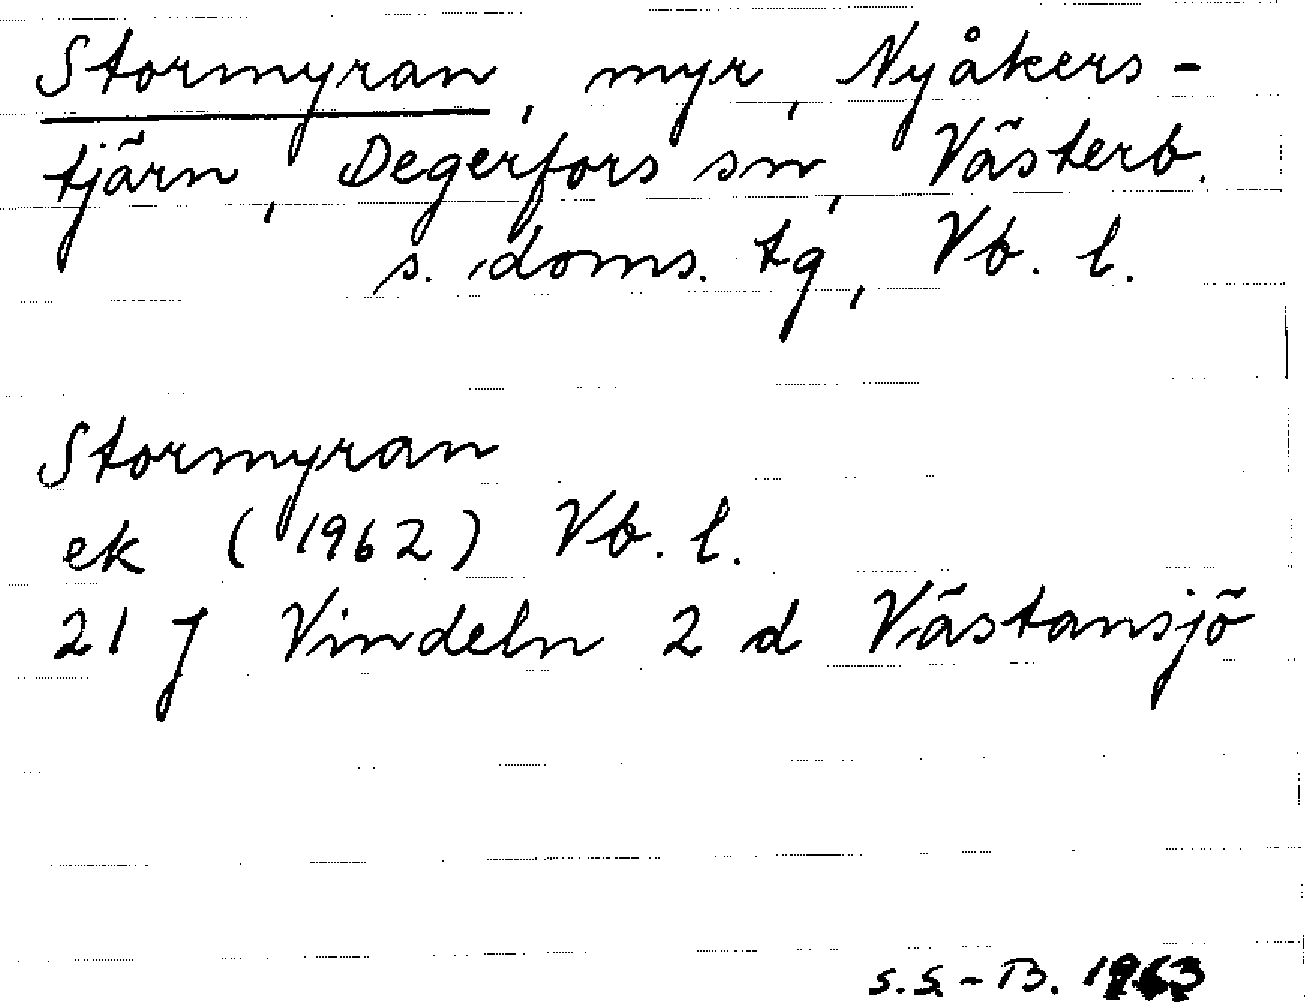 Stormyran, myr, Nyåkers-
tjärn, Degerfors sn, Västerb.
s. doms. tg, Vb. l.
Stormyran
ek (1962) Vb. l.
21 J Vindeln 2 d Västansjö
S.S.-B. 1963